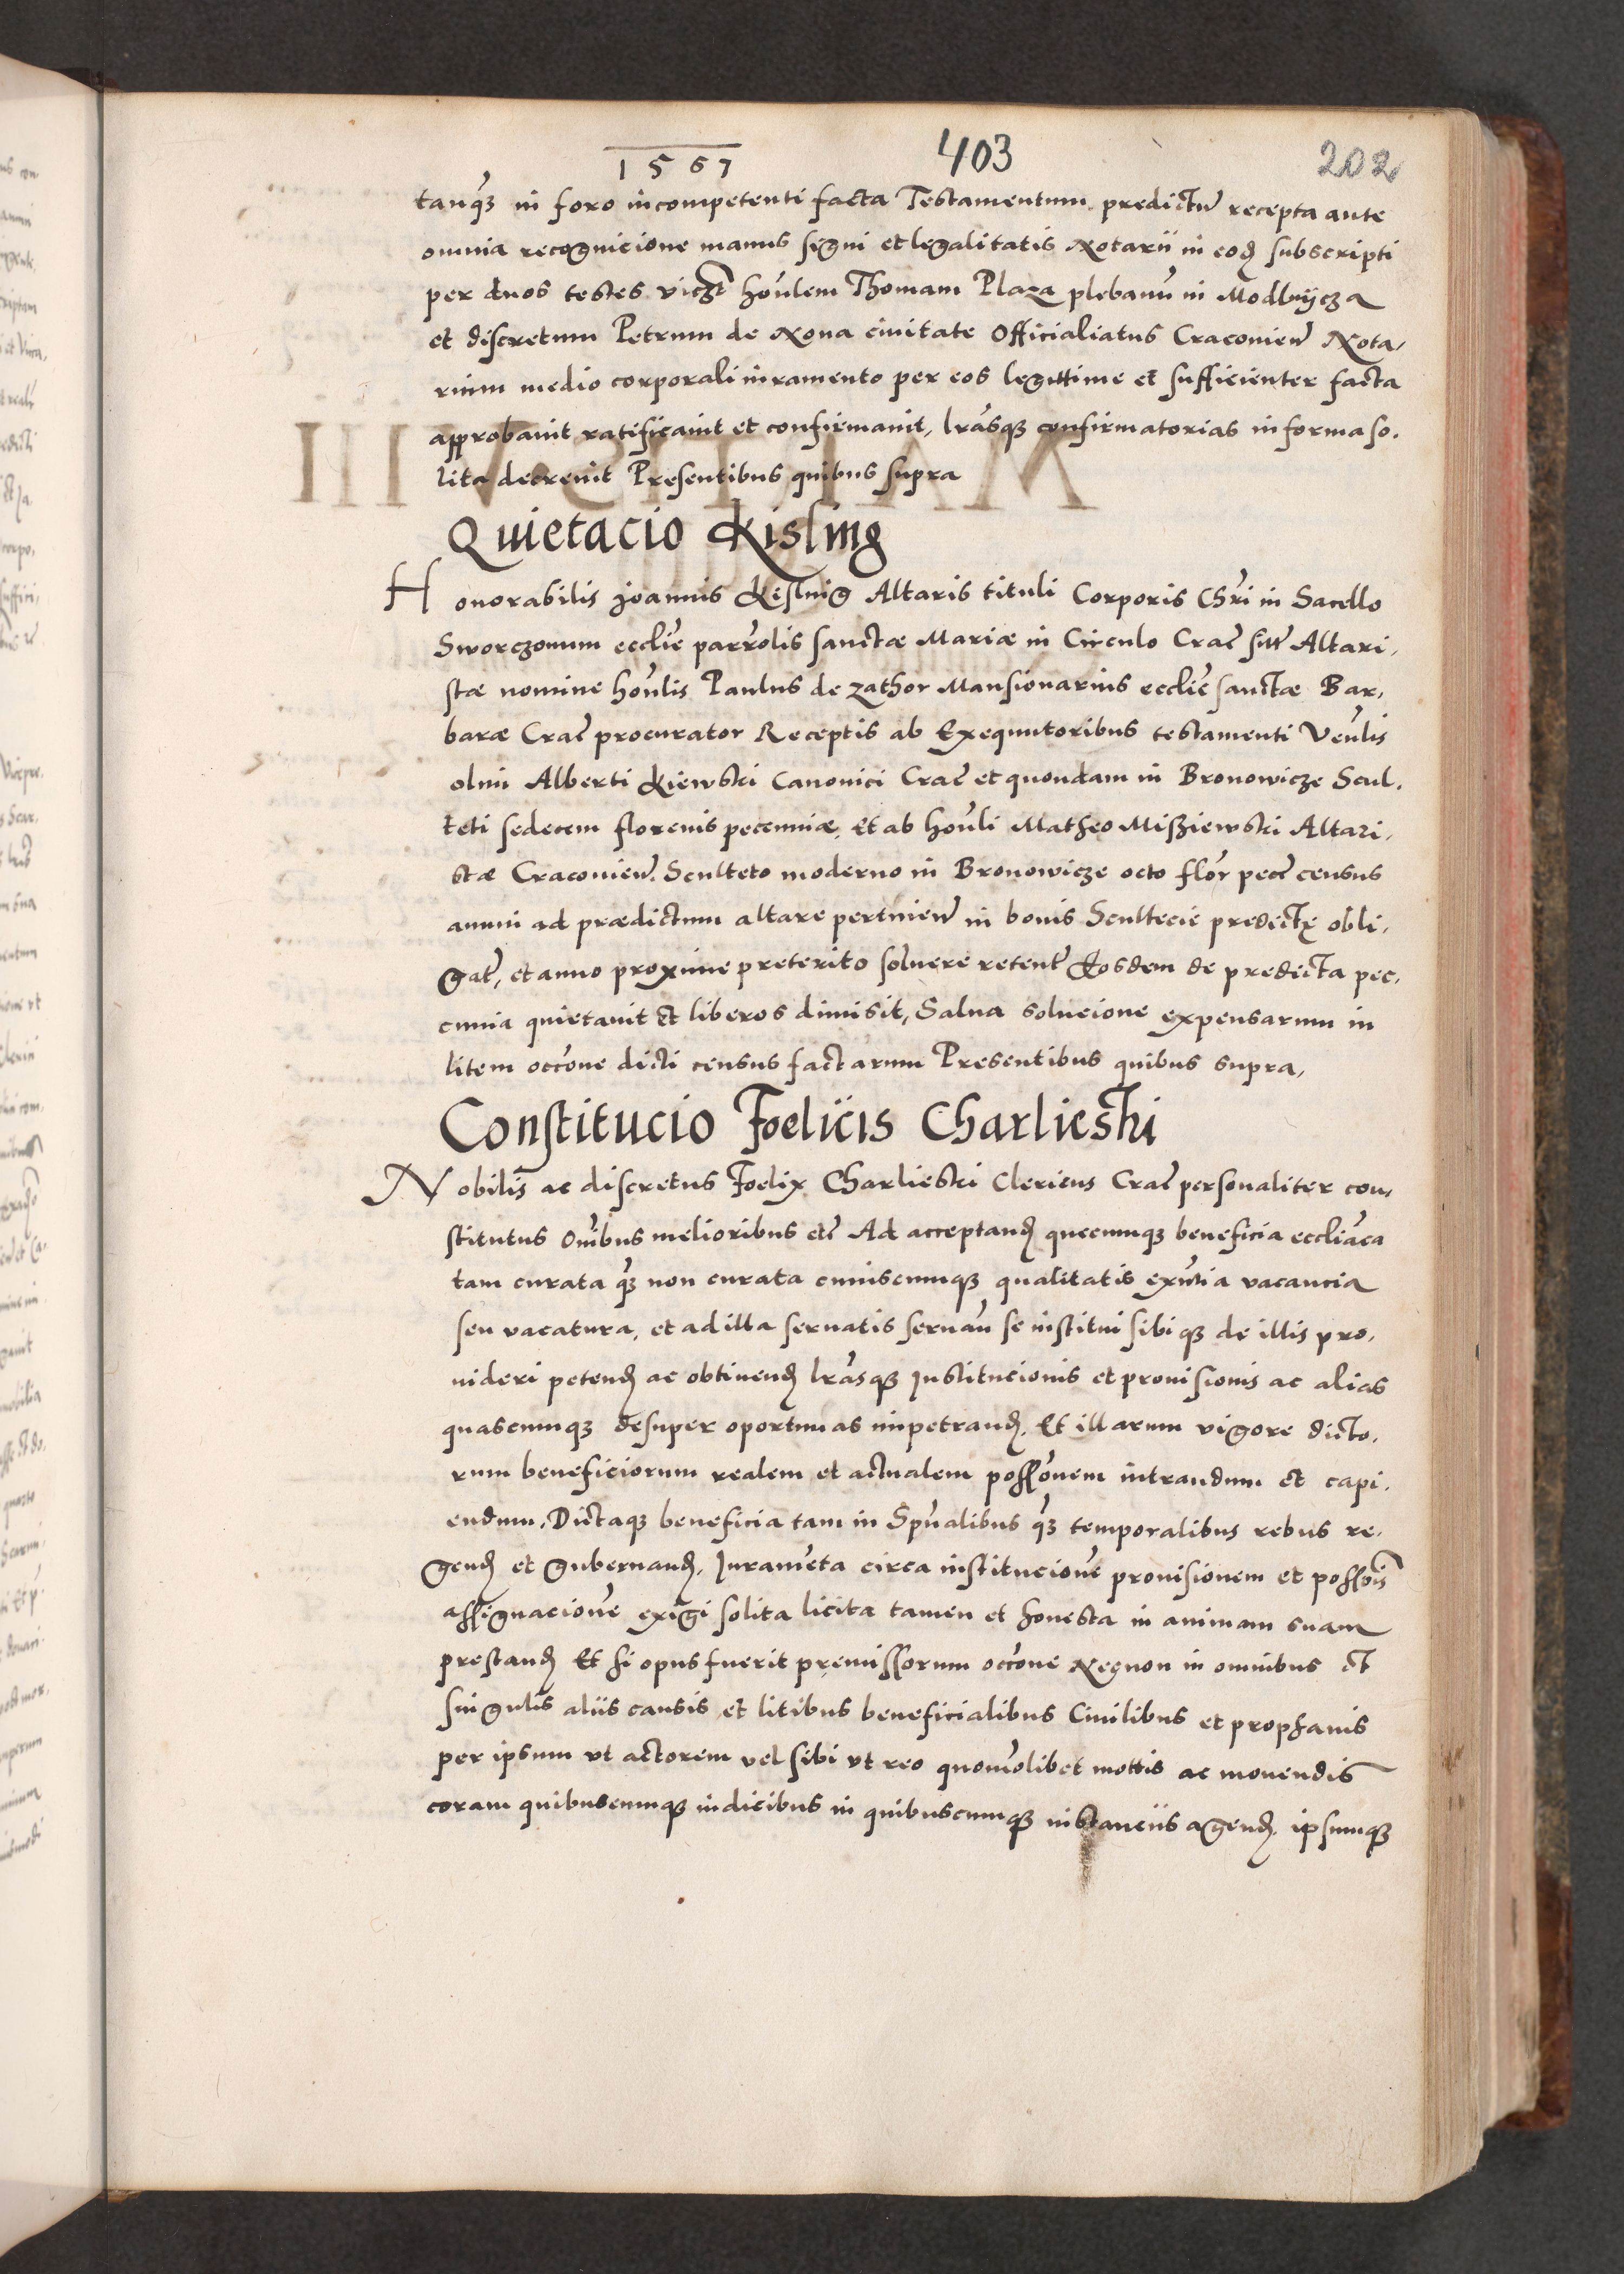 1567
403
202
tanq̃ȝ in foro incompetenti facta Testamentum predictũ recepta ante
omnia recognicione manus signi et legalitatis Notarii in eoď subscripti
per duos testes viczt hoñlem Thomam Plaza plebanũ in Modlnijcza
et discretum Petrum de Nova civitate Officialiatus Cracovieñ Nota,
rium medio corporali iuramento per eos legittime et sufficienter facta
approbauit ratificauit et confirmauit, lrãsqȝ confirmatorias in forma so.
lita decreuit Presentibus quibus supra
Quietacio Kisling
Honorabilis Joannis Kisling Altaris tituli Corporis Chr̃i in Sacello
Sworczonum eccliẽ parr̃olis sanctæ Mariæ in Circulo Crac̃ sitt̃ Altari,
stæ nomine hoñlis Paulus de Zathor Mansionarius eccliẽ sanctæ Bar,
baræ Crac̃ procurator Receptis ab Exequutoribus testamenti Veñlis
olim Alberti Kiewski Canonici Crac̃ et quondam in Bronowicze Scul.
teti sedecem florenis pecuniæ, et ab hoñli Matheo Misziewski Altari,
stæ Cracovieñ. Sculteto moderno in Bronowicze octo flor̃ pecc̃ census
annui ad prædictum altare pertinen̄ in bonis Scultecie predictę obli,
gat̃, et anno proxime preterito soluere retent̃ Eosdem de predicta pec,
cunia quietauit et liberos dimisit, Salua solucione expensarum in
litem occõne dicti census factarum Presentibus quibus supra,
Constitucio Foelicis Charlieski
Nobilis ac discretus Foelix Charlieski Clericus Crac̃ personaliter con,
stitutus Om̃ibus melioribus etc̃ Ad acceptanď quecumqȝ beneficia eccliãca
tam curata q̃ȝ non curata cuiuscumqȝ qualitatis exñtia vacancia
seu vacatura, et ad illa seruatis seruañ se institui sibi qȝ de illis pro,
uideri petenď ac obtinenď lrãsqȝ Institucionis et prouisionis ac alias
quascumqȝ desuper oportunas impetranď, Et illarum vigore dicto,
rum beneficiorum realem et actualem possõnem intrandum et capi,
endum, Dictaqȝ beneficia tam in Spũalibus q̃ȝ temporalibus rebus re,
genď et gubernanď, Iuramẽta circa institucionẽ prouisionem et possõis
assignacionẽ exigi solita licita tamen et honesta in animam suam
prestanď Et si opus fuerit pręmissorum occõne Necnon in omnibus et
singulis aliis causis et litibus beneficialibus Ciuilibus et prophanis
per ipsum ut actorem vel sibi ut reo quomõlibet mottis ac mouendis
coram quibuscumqȝ iudicibus in quibuscumqȝ instanciis agenď, ipsumqȝ